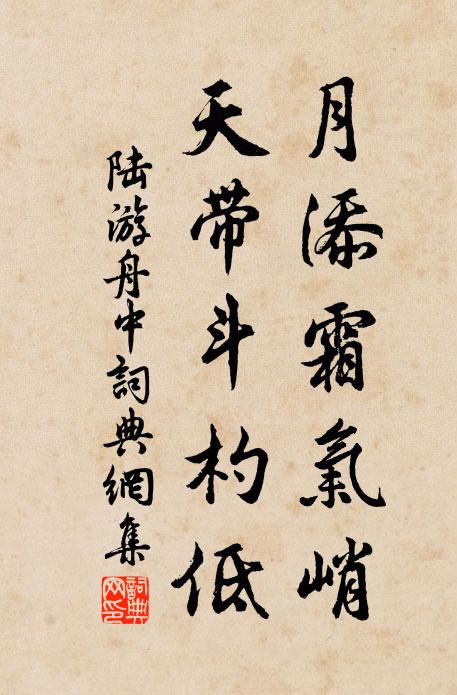 月添霜氣峭
天帶斗杓低
陸游舟中詞典網集
詞典网印